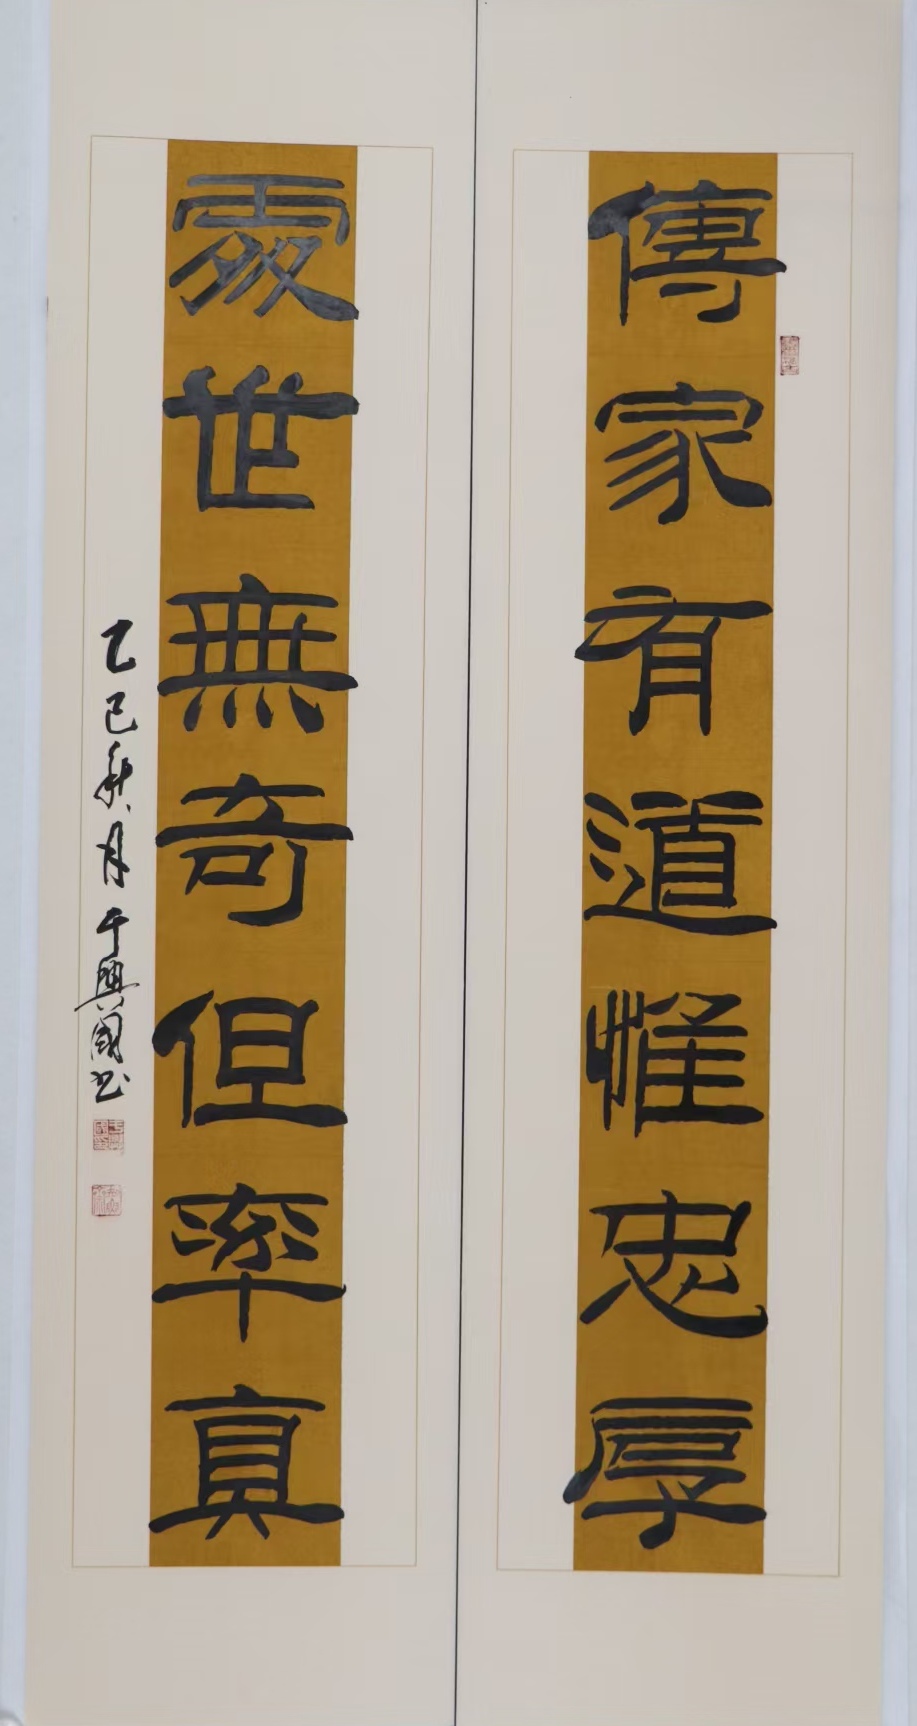 傳家有道惟忠厚
處世無奇但率真
乙巳秋月于興國书